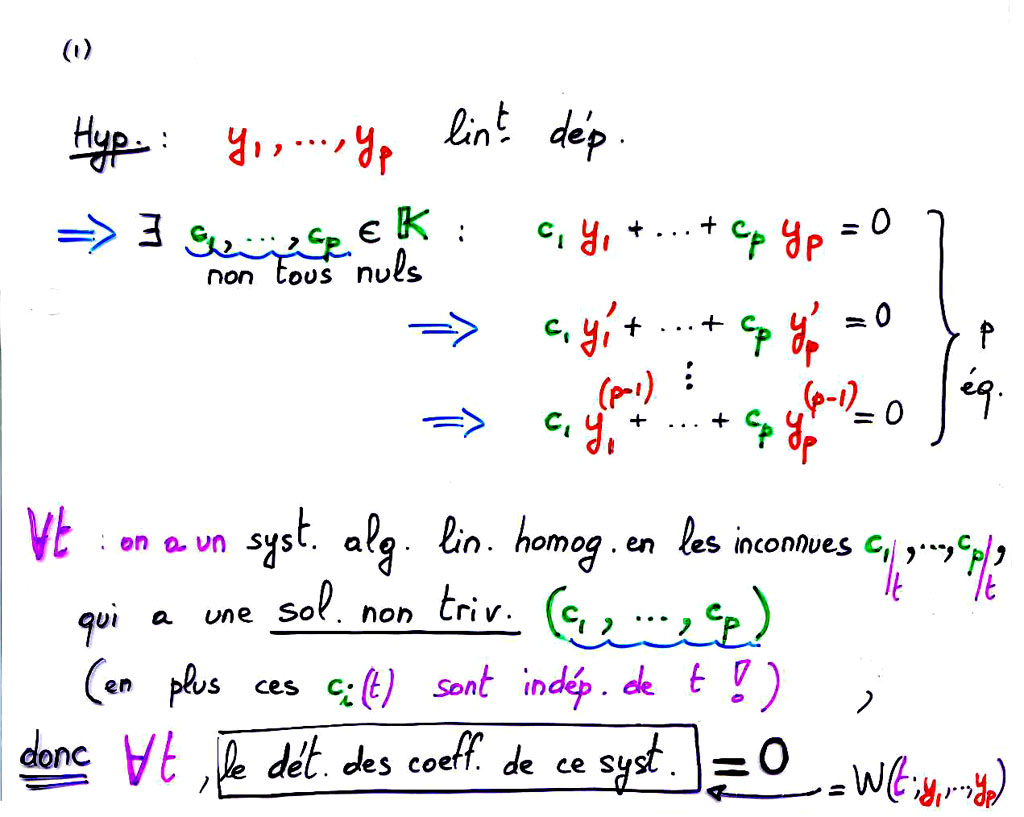 (1)
Hyp. : y₁, ..., yₚ linᵗ. dép.
⟹ ∃ c₁, ..., cₚ ∈ 𝕂 : c₁ y₁ + ... + cₚ yₚ = 0
non tous nuls
⟹ c₁ y₁' + ... + cₚ yₚ' = 0
⋮
⟹ c₁ y₁⁽ᵖ⁻¹⁾ + ... + cₚ yₚ⁽ᵖ⁻¹⁾ = 0
p
éq.
∀t : on a un syst. alg. lin. homog. en les inconnues c₁/t, ..., cₚ/t,
qui a une sol. non triv. (c₁, ..., cₚ)
(en plus ces cᵢ(t) sont indép. de t !) ,
donc ∀t, le dét. des coeff. de ce syst. = 0
= W(t; y₁, ..., yₚ)